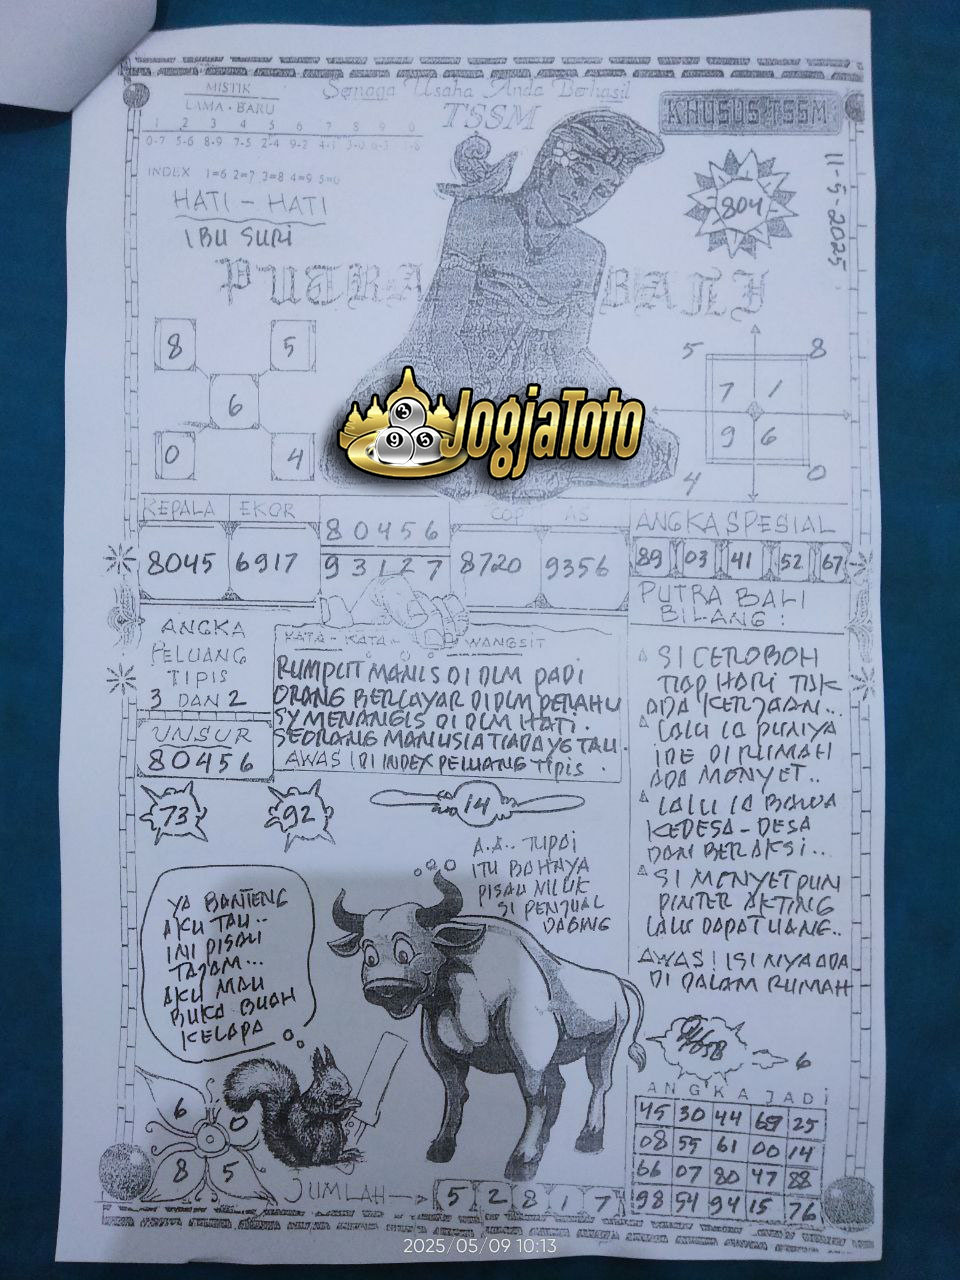 MISTIK
LAMA - BARU
1 2 3 4 5 6 7 8 9 0
0-7 5-6 8-9 7-5 2-4 9-2 4-1
INDEX 1=6 2=7 3=8 4=9 5=0
HATI - HATI
IBU SURI
Semoga Usaha Anda Berhasil
TSSM
KHUSUS TSSM
804
11-5-2025
PUTRA BALI
8 5
6
0 4
5 8
7 1
9 6
4 0
JogjaToto
3
9 5
KEPALA EKOR
8045 6917
80456
93127
COP AS
8720 9356
ANGKA SPESIAL
89 03 41 52 67
ANGKA
PELUANG
TIPIS
3 DAN 2
UNSUR
80456
KATA - KATA - WANGSIT
RUMPUT MANIS DI DLM PADI
ORANG BERLAYAR DI DLM PERAHU
SY MENANGIS DI DLM HATI.
SEORANG MANUSIA TIADA YG TAU.
AWAS IDI INDEX PELUANG TIPIS.
PUTRA BALI
BILANG :
SI CEROBOH
TIAP HARI TAK
ADA KERJAAN..
LALU IA PUNYA
IDE DI RUMAH
ADA MONYET..
LALU IA BAWA
KEDESA-DESA
DAN BERAKSI...
SI MENYET PUN
PINTER AKTING
LALU DAPAT UANG..
AWAS! ISI NYA ADA
DI DALAM RUMAH
73
92
14
A.A.. TUPAI
ITU BAHAYA
PISAU MILUK
SI PENJUAL
DAGING
YA BANTENG
AKU TAU..
INI PISAU
TAJAM...
AKU MAU
BUKA BUAH
KELAPA
6
6 0
8 5
ANGKA JADI
45 30 44 69 25
08 55 61 00 14
66 07 80 47 88
98 54 94 15 76
JUMLAH 5 2 8 1 7
2025/05/09 10:13